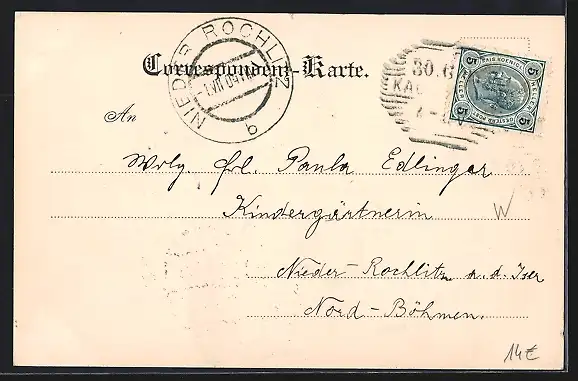 Correspondenz-Karte.
NIEDER ROCHLITZ
30.6
5 KAIS. KOENIGL. 5
5 OESTERR. POST 5
An
Wolg. Frl. Paula Edlinger
Kindergärtnerin
W
Nieder-Rochlitz a. d. Iser
Nord-Böhmen.
14€